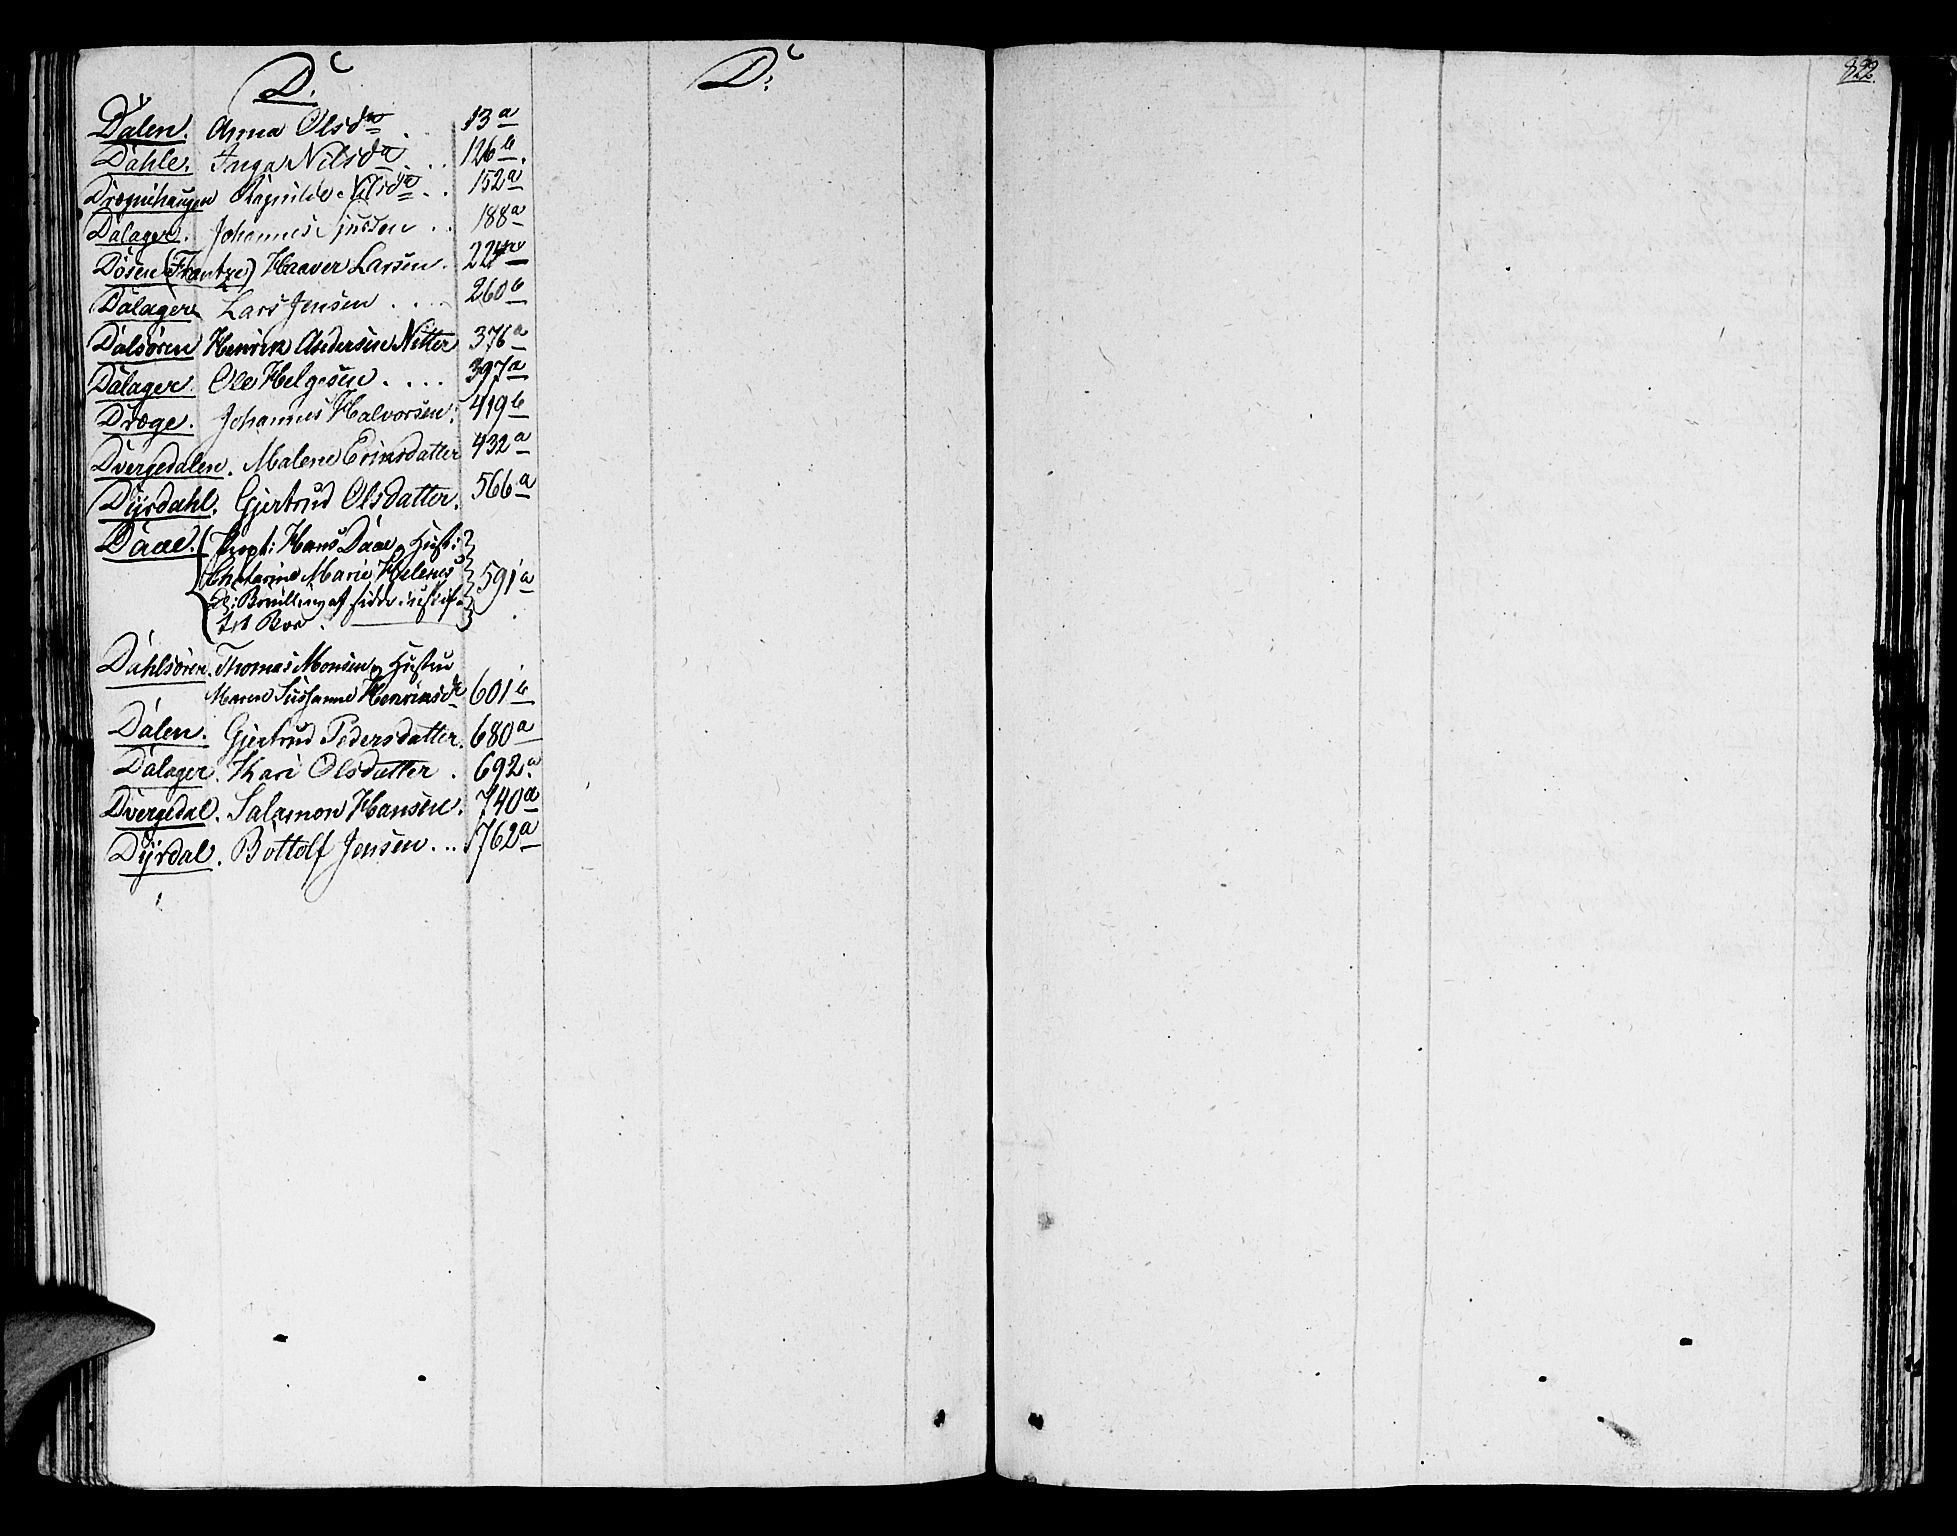 D.
D:
822
Dalen. Anna Olsda 13a
Dahle. Inga Nilsda . . 126b.
Drægnihaugen Ragnilde Nilsda . . 152a
Dalager. Johannes . . 188a
Døsen (Frantze) Haaver Larsen. 224
Dalager Lars Jensen . . . . 260b
Dalsøren Henrik Andersen Nitter 376a
Dalager. Ole Helgesen . . . . 397a
Dræge. Johannes Halvorsen: 419b
Dvergedalen. Malene Eriksdatter 432a
Dyrdahl. Gjertrud Olsdatter. 566a
Daae. Hans Daae og Hust:
Chatarine Marie Helenes 591a
af
Dahlsøren. Thomas Monsen og Hustru
Maren Susanne Henriksdr 601b
Dalen. Gjertrud Pedersdatter. 680a
Dalager. Kari Olsdatter . 692a.
Dvergedal. Salamon Hansen. 740a
Dyrdal. Bottolf Jensen . .. 762a